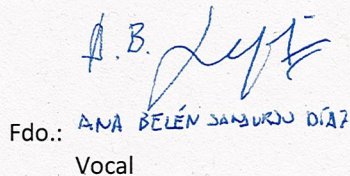 A. B.
Fdo.: ANA BELÉN SANJURJO DÍAZ
Vocal